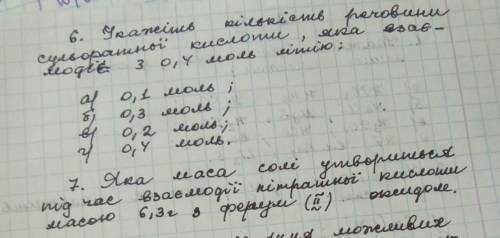 6. Укажіть кількість речовини
сульфатної кислоти, яка взає-
модіє з 0,4 моль літію:
а) 0,1 моль;
б) 0,3 моль;
в) 0,2 моль;
г) 0,4 моль.
7. Яка маса солі утвориться
під час взаємодії нітратної кислоти
масою 6,3г з ферум (II) оксидом.
можливих